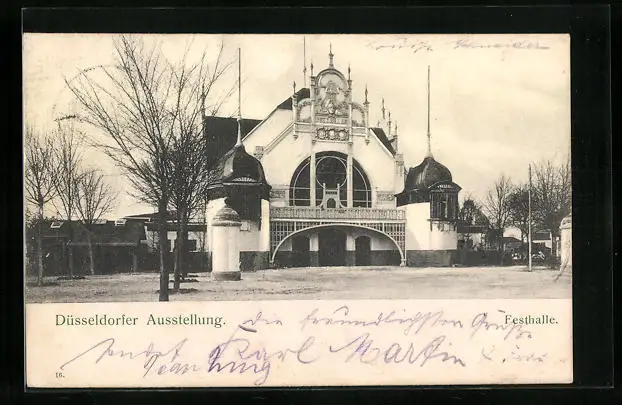 Düsseldorfer Ausstellung. Festhalle.
die freundlichsten Grüße
sendet Karl Martin & Frau
16.